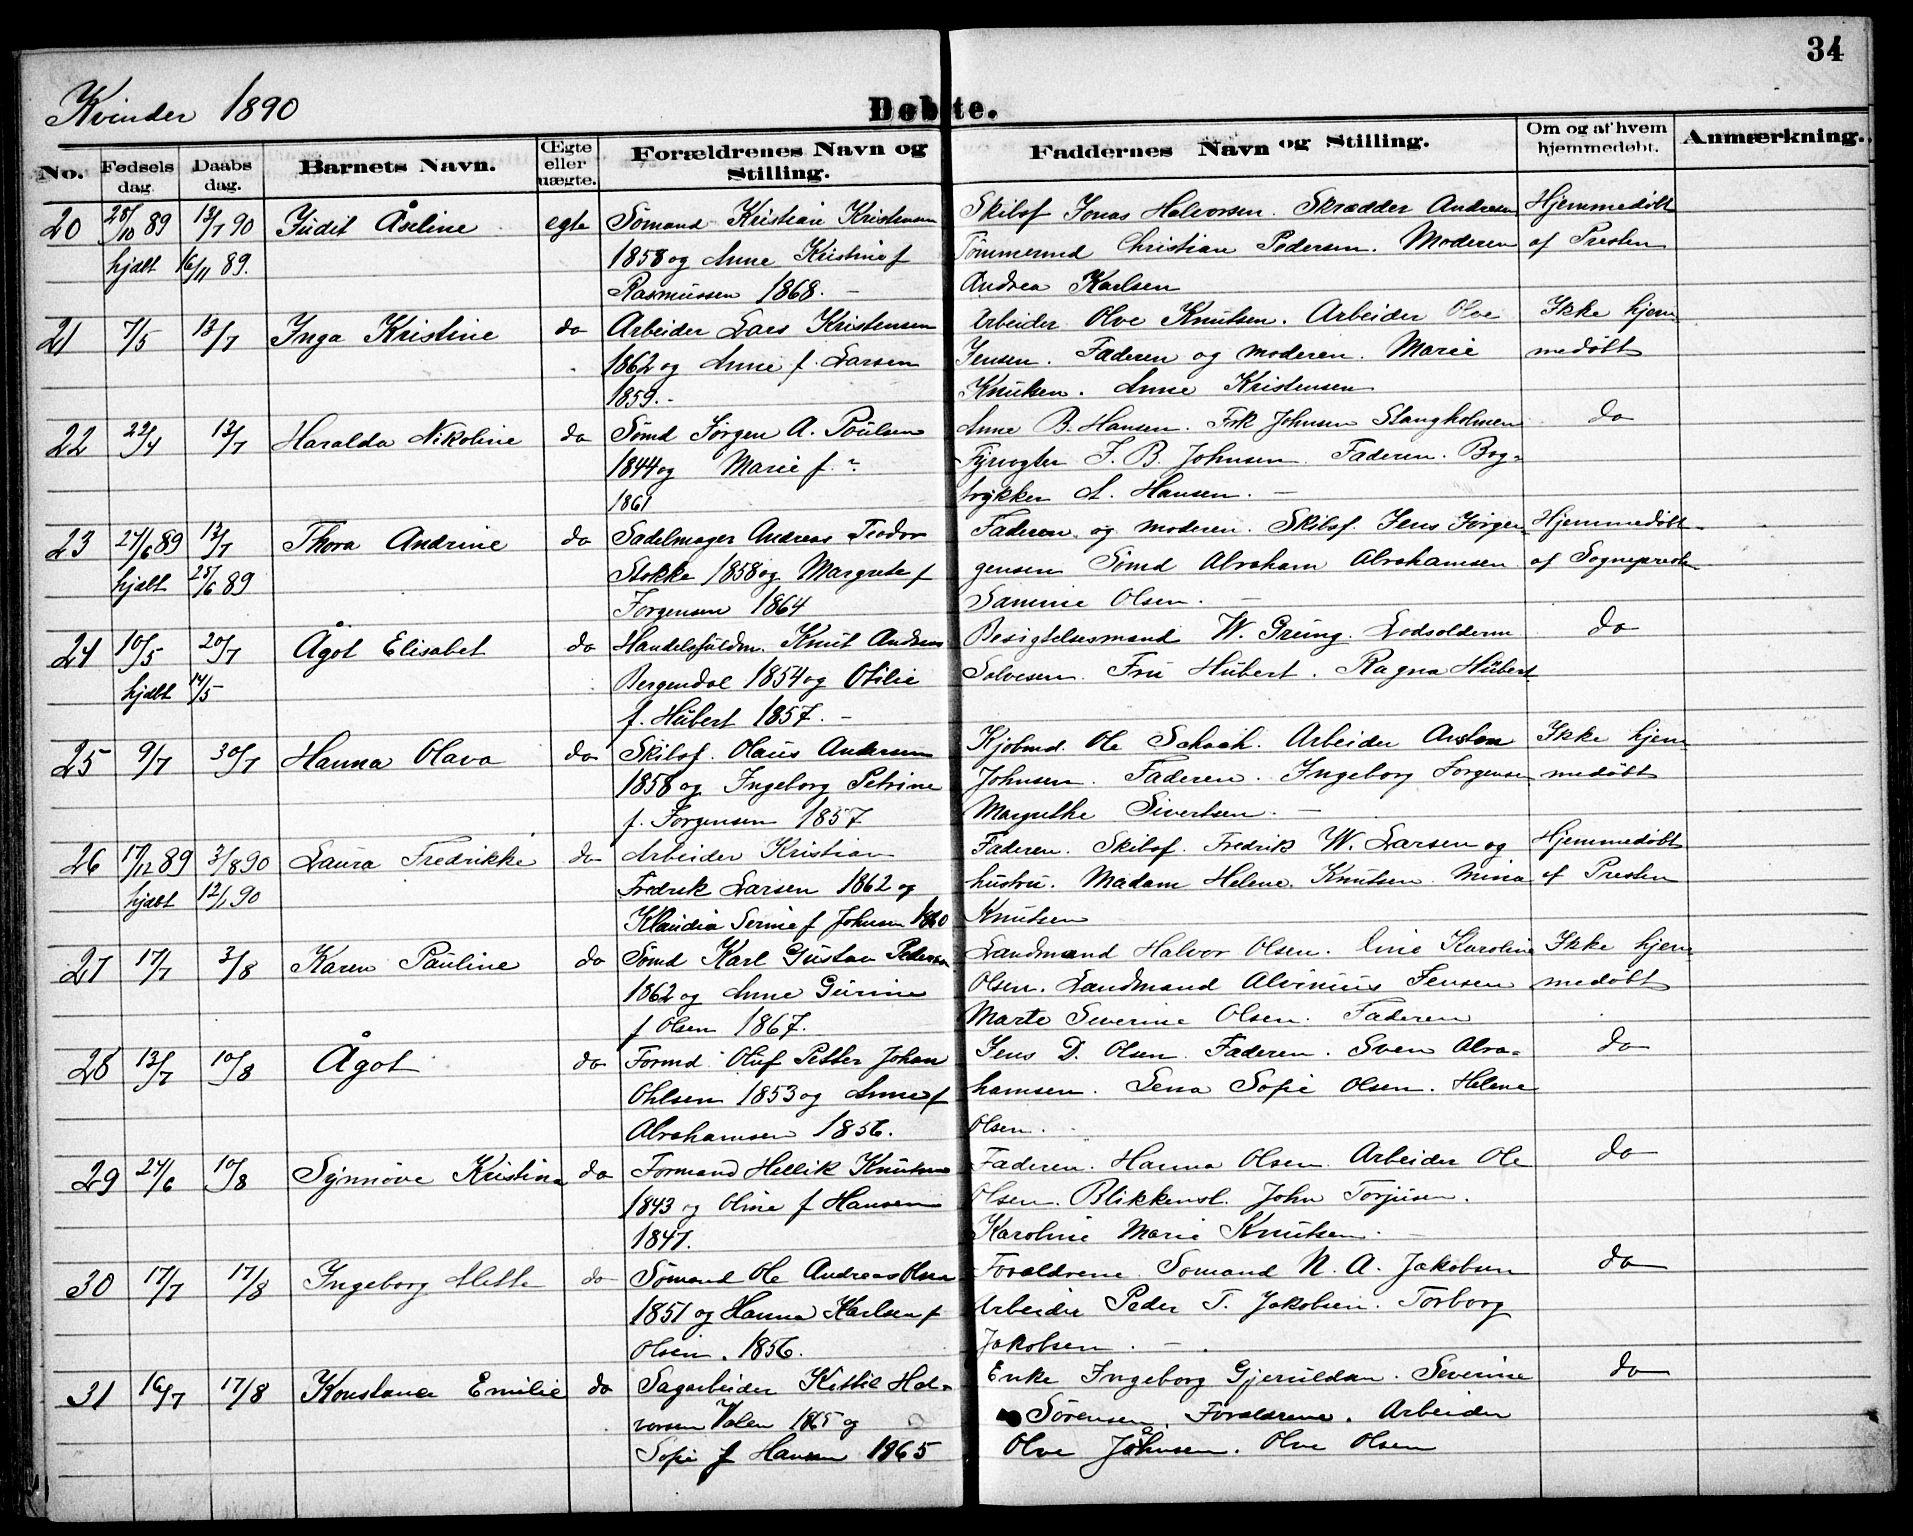 34
Kvinder 1890
Døbte.
No. Fødsels dag. Daabs dag. Barnets Navn. Œgte eller uægte. Forældrenes Navn og Stilling. Faddernes Navn og Stilling. Om og af hvem hjemmedøbt. Anmærkning.
20 28/10 89 13/7 90 Judit Åseline egte Sømand Kristian Kristensen Skibsf Jonas Halvorsen. Skrædder Andresen Hjemmedøbt
hjdbt 16/11 89. 1858 og Anne Kistine f Tømmermd Christian Pedersen. Moderen af Presten
Rasmussen 1868. — Andrea Karlsen
21 7/5 13/7 Inga Kristine do Arbeider Lars Kristensen Arbeider Olve Knutsen. Arbeider Olve Ikke hjem
1862 og Anne f. Larsen Jensen. Faderen og moderen. Marie medøbt
1859. - Knutsen. Anne Kristensen
22 22/4 13/7 Haralda Nikoline do Sømd Jørgen A. Poulsen Anne B. Hansen. Frk Johnsen Stangholmen do
1844 og Marie f. ? Fyrvogter J. B. Johnsen. Faderen. Bog-
1861 trykker A. Hansen. —
23 24/6 89 13/7 Thora Andrine do Sadelmager Andreas Teodor Faderen og moderen. Skibsf. Jens Jørgen- Hjemmedøbt
hjdbt 25/6 89 Stokke 1858 og Margrete f gensen Sømd Abraham Abrahamsen af Sognepresten
Jørgensen 1864 Samine Olsen. —
24 10/5 20/7 Ågot Elisabet do Handelsfuldm. Knut Andreas Besigtelsesmand W. Grüng. Lodsolderm do
hjdbt 14/5 Bergendal 1854 og Otilie Solvesen. Fru Hübert. Ragna Hübert
f. Hübert 1857. —
25 9/7 30/7 Hanna Olava do Skibsf. Olaus Andersen Kjøbmd. Ole Schach. Arbeider Anton Ikke hjem
1858 og Ingeborg Petrine Johnsen. Faderen. Ingeborg Jorgensen medøbt
f. Jorgensen 1857 Margrethe Sivertsen. —
26 17/12 89 3/8 90 Laura Fredrikke do Arbeider Kristian Faderen. Skibsf. Fredrik W. Larsen og Hjemmedøbt
hjdbt 12/1 90 Fredrik Larsen 1862 og hustru. Madam Helene Knutsen. Mina af Presten
Klaudia Serine f Johnsen 1860 Knutsen
27 17/7 3/8 Karen Pauline do Sømd Karl Gustav Pedersen Landmand Halvor Olsen. Line Karoline Ikke hjem
1862 og Anne Gurine Olsen. Landmand Alvinius Jensen medøbt
f Olsen 1867. Marte Severine Olsen. Faderen
28 13/7 10/8 Ågot do Formd Oluf Petter Johan Jens D. Olsen. Faderen. Sven Abra- do
Ohlsen 1853 og Anne f hamsen. Lena Sofie Olsen. Helene
Abrahamsen 1856. Olsen.
29 24/6 10/8 Synnøve Kristina do Formand Hellik Knutsen Faderen. Hanna Olsen. Arbeider Ole do
1843 og Oline f Hansen Olsen. Blikkensl. John Torjusen.
1847. Karoline Marie Knutsen.
30 17/7 17/8 Ingeborg Mette do Sømand Ole Andreas Olsen Forældrene. Somand N. A. Jakobsen do
1851 og Hanna Karlsen f Arbeider Peder T. Jakobsen. Torborg
Olsen. 1856. Jakobsen. —
31 16/7 17/8 Konstance Emilie do Sagarbeider Kittil Hal- Enke Ingeborg Gjeruldsen. Severine do
vorsen Valen 1865 og Sørensen. Forældrene. Arbeider
Sofie f Hansen 1865 Olve Johnsen. Olve Olsen